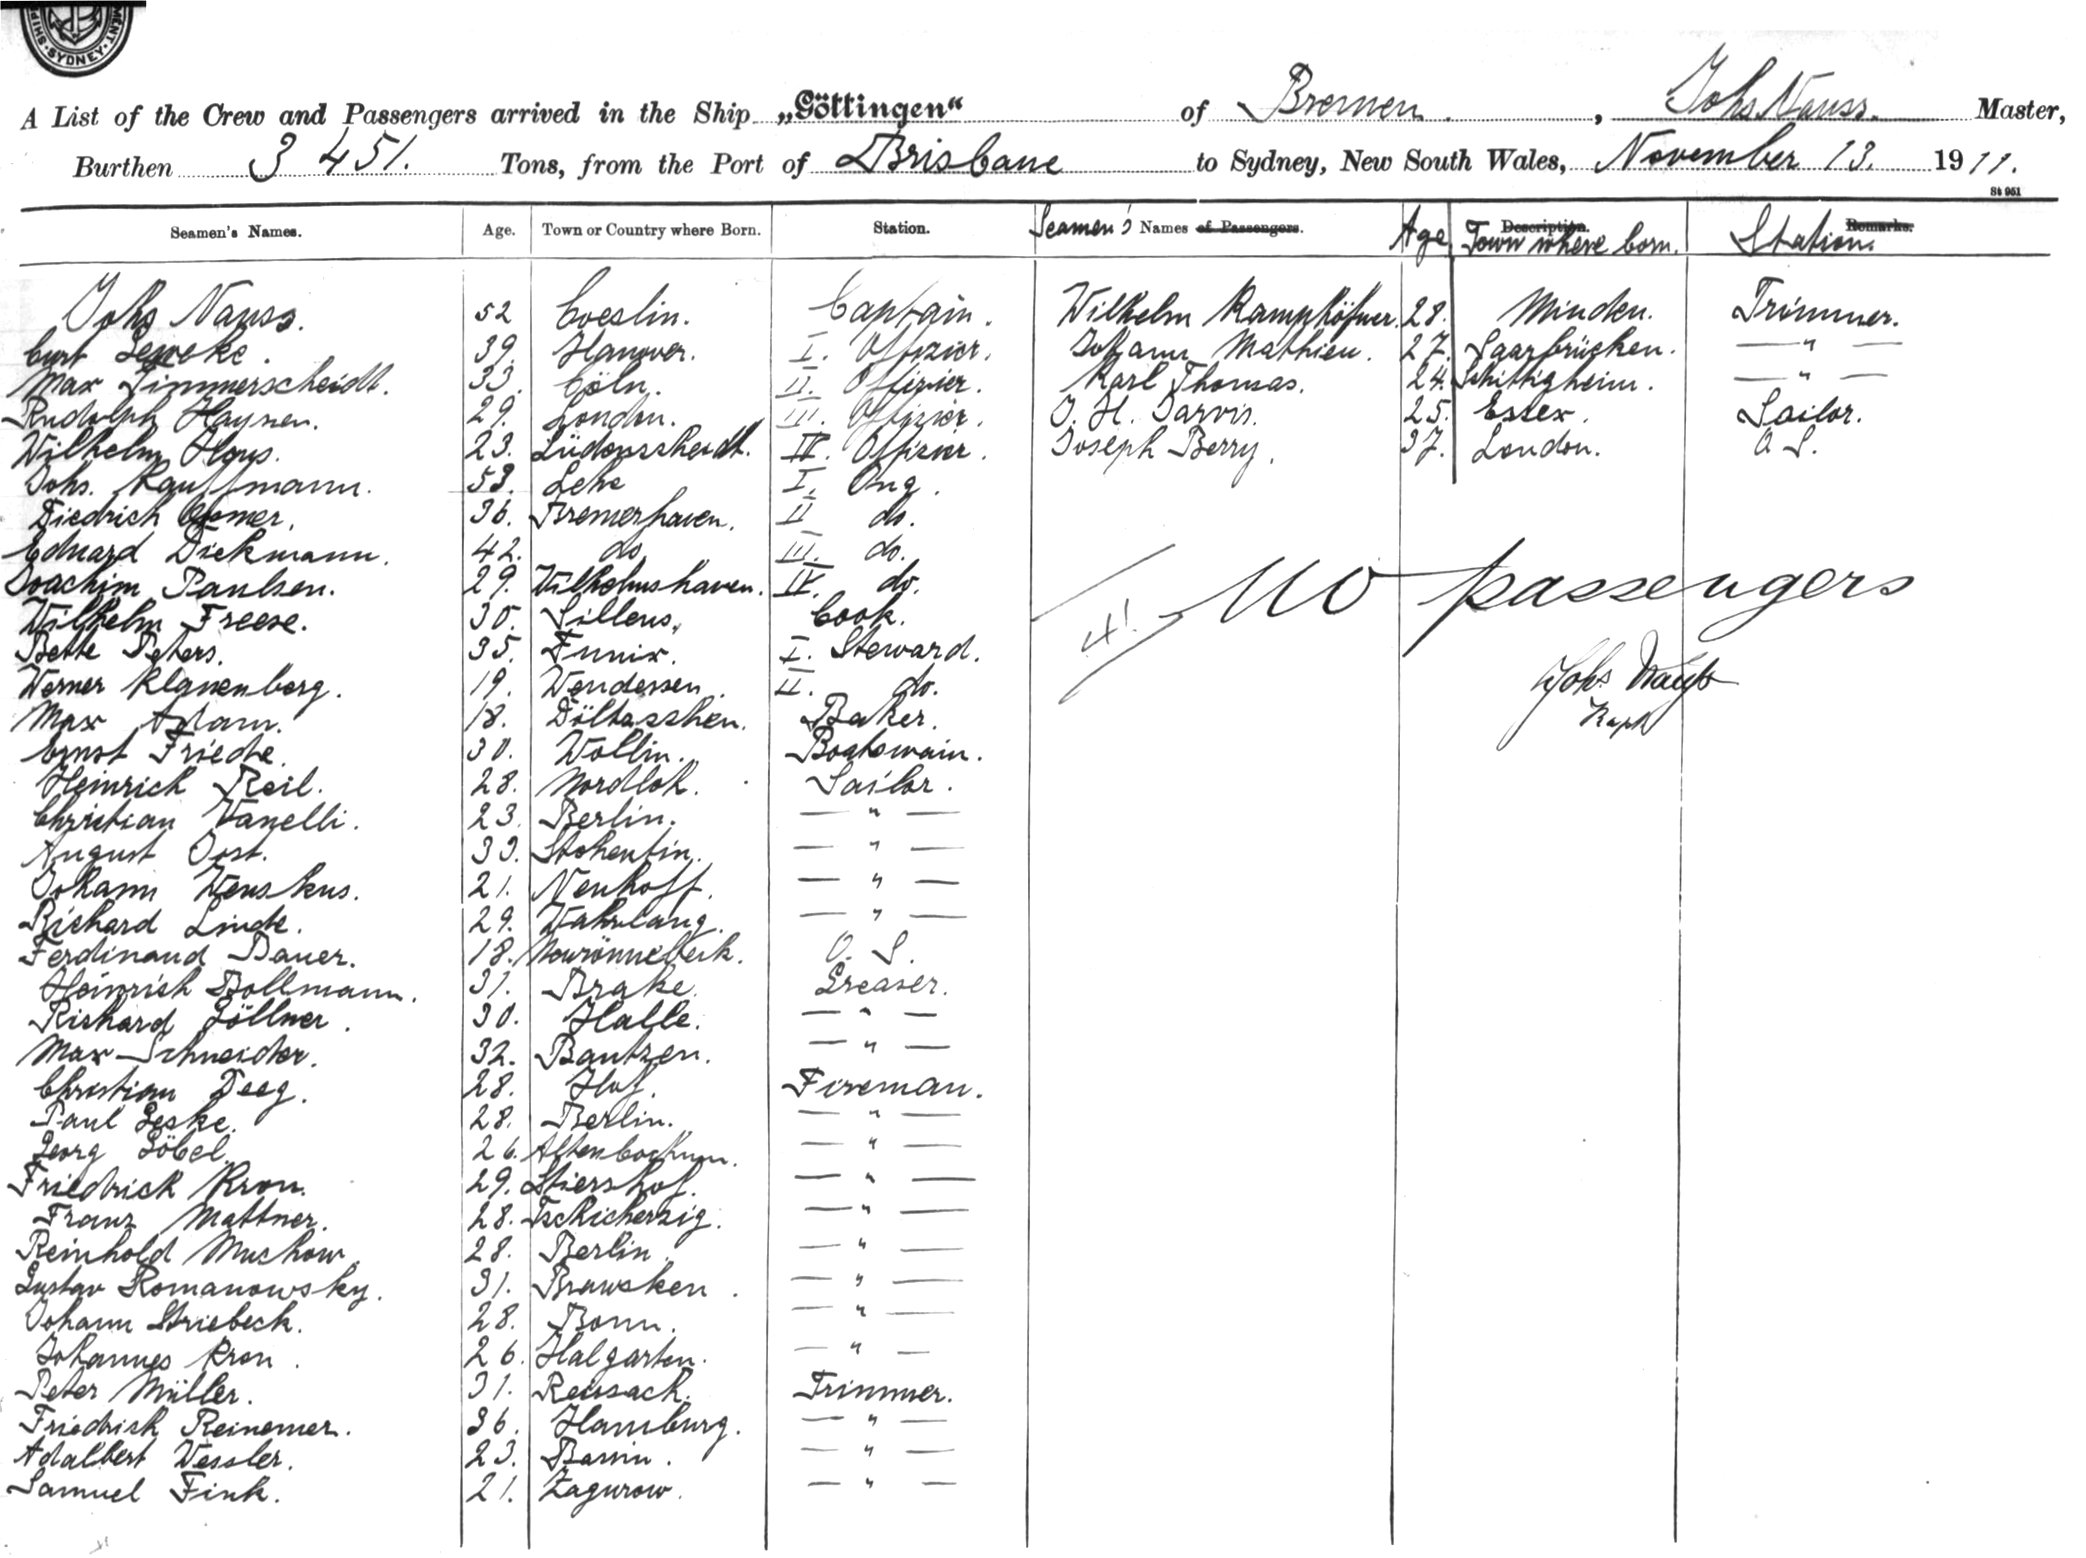 SHIPP MENT · SYDNEY ·
A List of the Crew and Passengers arrived in the Ship „Göttingen“ of Bremen, Johs Nauss. Master,
Burthen 3 451. Tons, from the Port of Brisbane to Sydney, New South Wales, November 13. 1911.
St 951
Seamen's Names. Age. Town or Country where Born. Station. Seamen's Names of Passengers. Age Description. Town where born. Remarks. Station.
Johs Nauss. 52 Coeslin. Captain. Wilhelm Kamphöfner. 28. Minden. Trimmer.
Curt Leweke. 39. Hanover. I. Offizier. Johann Mathieu. 27. Saarbrücken. — " —
Max Simmerscheidt. 33. Cöln. II. Offizier. Karl Thomas. 24. Schittigheim. — " —
Rudolph Haynen. 29. London. III. Offizier. J. H. Jarvis. 25. Essex. Sailor.
Wilhelm Hays. 23. Lüdensscheidt. IV. Offizier. Joseph Berry. 37. London. O S.
Johs. Kauffmann. 53. Lehe I. Ong.
Diedrich 36. Bremerhaven. II do.
Eduard Diekmann. 42. do III. do.
Joachim Paulsen. 29. Wilhelmshaven. IV. do.
Wilhelm Freese. 30. Sillens. Cook.
Bette Peters. 35. Funix. I. Steward.
Werner Klanenberg. 19. Wendessen. II. do.
Max Adam. 18. Döltzschen. Baker.
Ernst Friede. 30. Wollin. Boatswain.
Heinrich Reil. 28. Nordloh. Sailor.
Christian Vanelli. 23. Berlin. — " —
August Oost. 33. Stohentin. — " —
Johann Wenskus. 21. Neuhoff. — " —
Richard Linde. 29. Wahrlang. — " —
Ferdinand Bauer. 18. Neurönnebeck. O. S.
Heinrich Bollmann. 31. Brake. Greaser.
Richard Zöllner. 30. Halle. — " —
Max Schneider. 32. Bautzen. — " —
Christian Deeg. 28. Hof. Fireman.
Paul Geske. 28. Berlin. — " —
Georg Göbel. 26. Altenbochum. — " —
Friedrich Kron. 29. Stiershof. — " —
Franz Mattner. 28. Tschicherzig. — " —
Reinhold Muchow. 28. Berlin. — " —
Gustav Romanowsky. 31. Brawsken. — " —
Johann Striebeck. 28. Bonn. — " —
Johannes Kron. 26. Halgarten. — " —
Peter Müller. 31. Reusach. Trimmer.
Friedrich Reinemer. 36. Hamburg. — " —
Adalbert Wessler. 23. Banin. — " —
Samuel Fink. 21. Zagurow. — " —
no passengers
Johs Nauss
Kapt